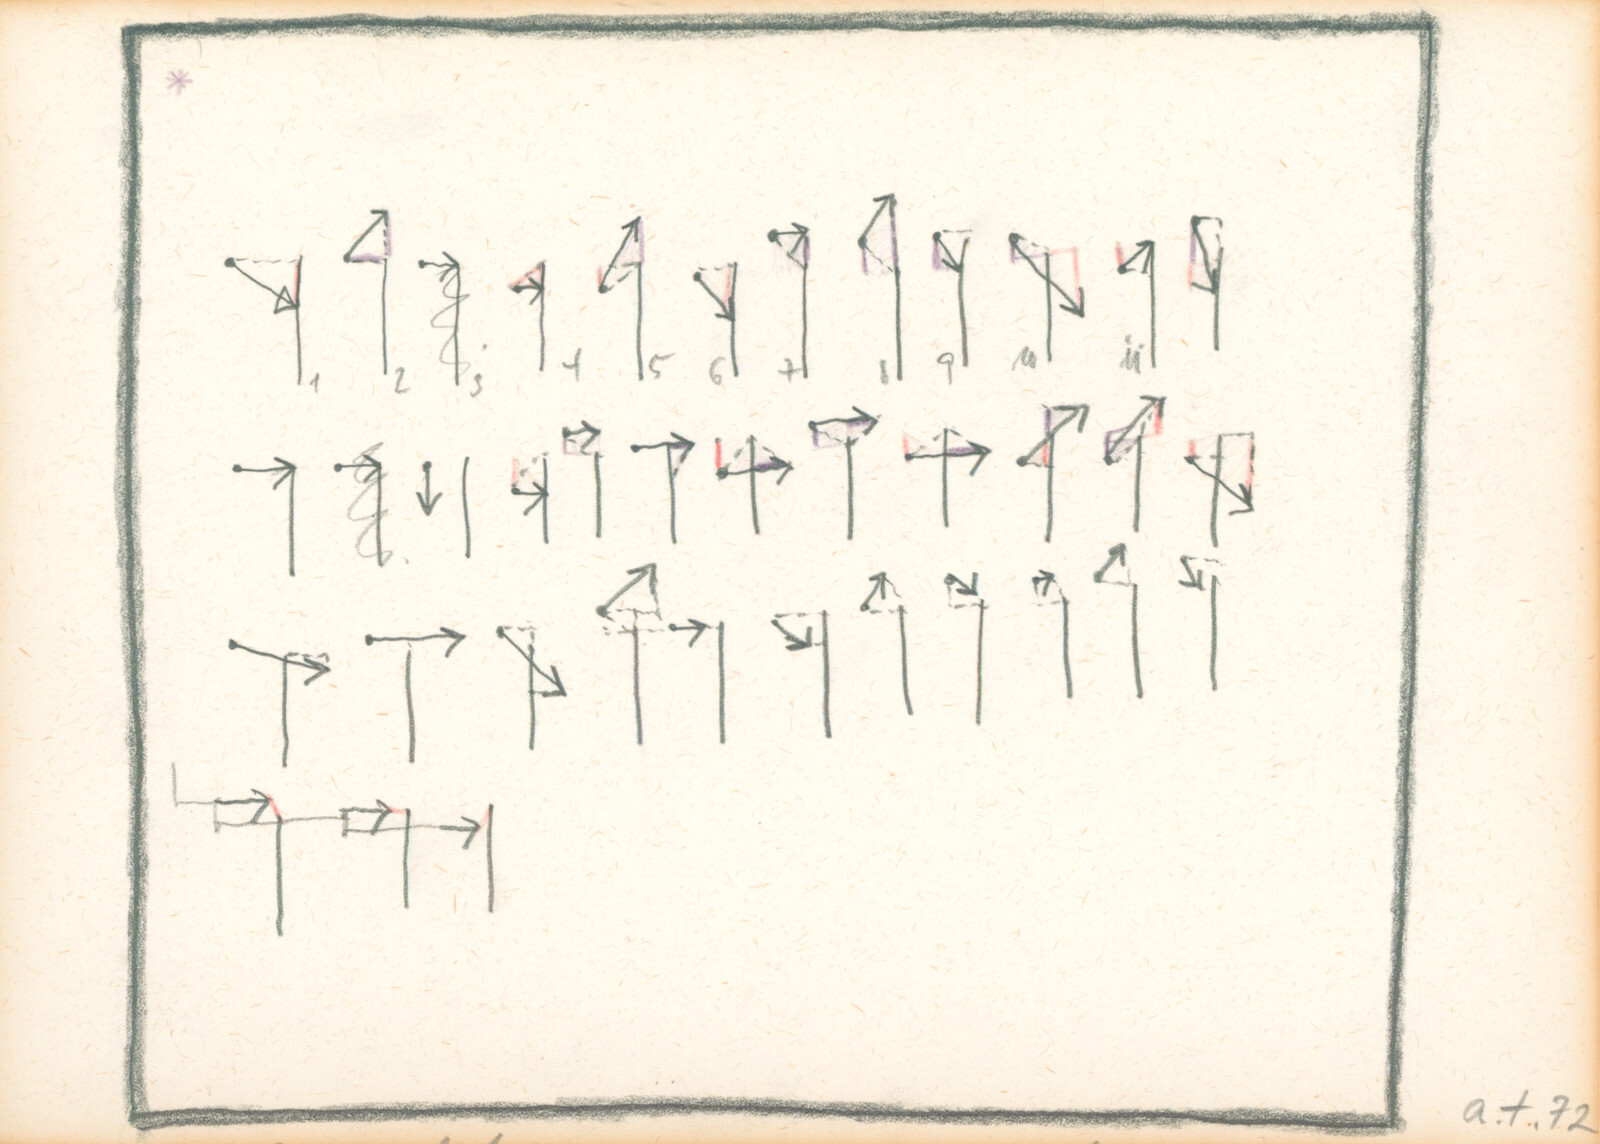 *
1 2 3 4 5 6 7 8 9 10 11
a.t.72